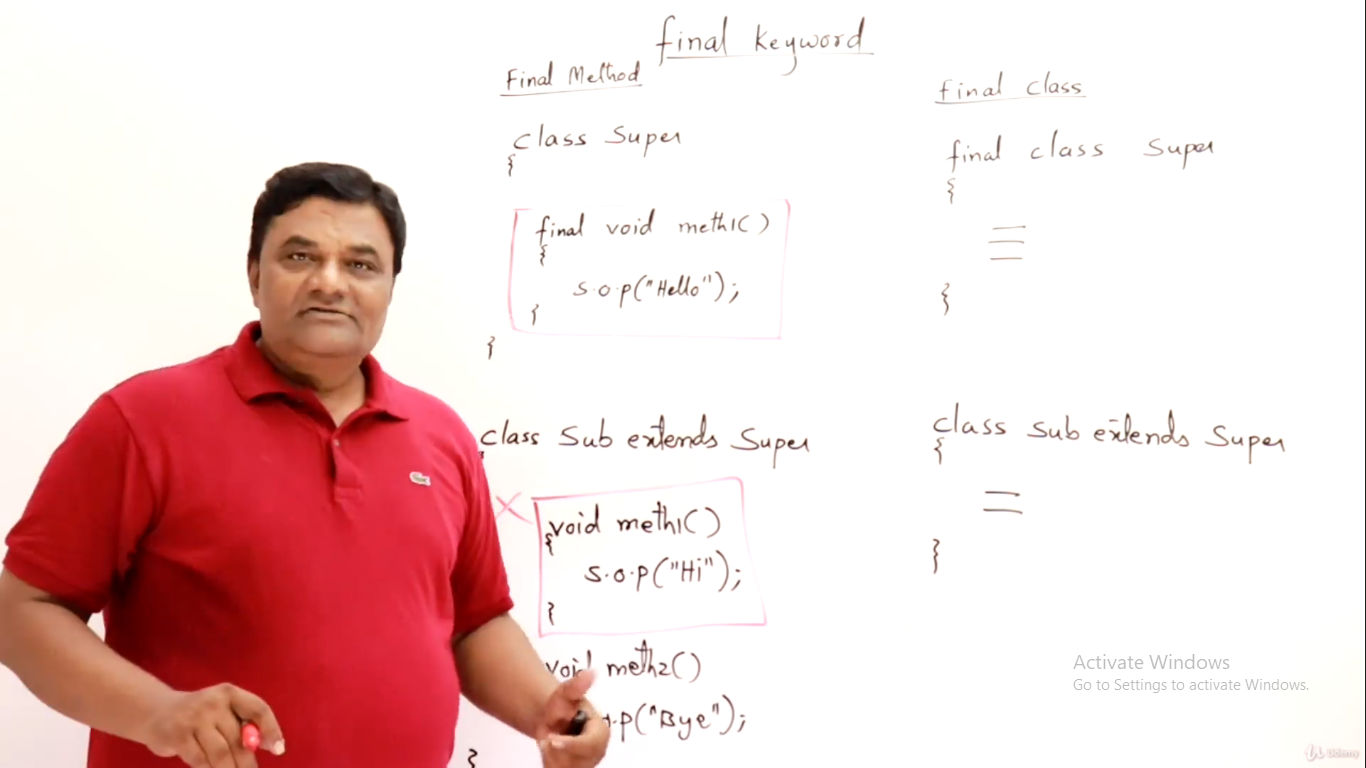 final keyword
Final Method
class Super
{
final void meth1()
{
S.o.p("Hello");
}
}
class Sub extends Super
{
X
void meth1()
{
S.o.p("Hi");
}
void meth2()
o.p("Bye");
}
final class
final class Super
{
}
class Sub extends Super
{
}
Activate Windows
Go to Settings to activate Windows.
Udemy